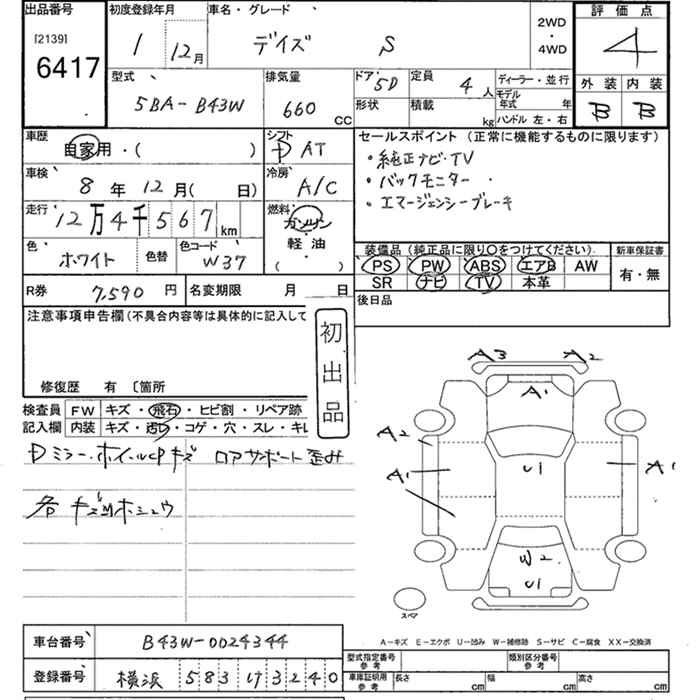 出品番号
[2139]
6417
初度登録年月
1 12月
車名・グレード
デイズ S
2WD
・
4WD
評価点
4
外装 内装
B B
型式
5BA-B43W
排気量
660 CC
ドア 5D
形状
定員 4人
積載 kg
ディーラー・並行
モデル年式 年
ハンドル 左・右
車歴
自家用・( )
シフト
AT
セールスポイント (正常に機能するものに限ります)
・純正ナビ・TV
・バックモニター
・エマージェンシーブレーキ
車検
8年12月( 日)
冷房
A/C
走行
12万4千567km
燃料
ガソリン
軽油
( )
色
ホワイト
色替
色コード
W37
装備品 (純正品に限り○をつけてください)
PS PW ABS エアB AW
SR ナビ TV 本革
新車保証書
有・無
R券 7,590円
名変期限 月 日
後日品
注意事項申告欄(不具合内容等は具体的に記入して
修復歴 有 〔箇所
初出品
検査員
記入欄
FW キズ・飛石・ヒビ割・リペア跡
内装 キズ・汚れ・コゲ・穴・スレ・キレ
Dミラー・ホイールCPキズ ロアサポート歪み
各キズ凹ホシュウ
A3 A2
A1
A2
A1
U1
A1
W2
U1
スペア
A-キズ E-エクボ U-凹み W-補修跡 S-サビ C-腐食 XX-交換済
車台番号 B43W-0024344
登録番号 横浜 583 け3240
型式指定番号 参考
類別区分番号 参考
車庫証明用 参考 長さ cm 幅 cm 高さ cm